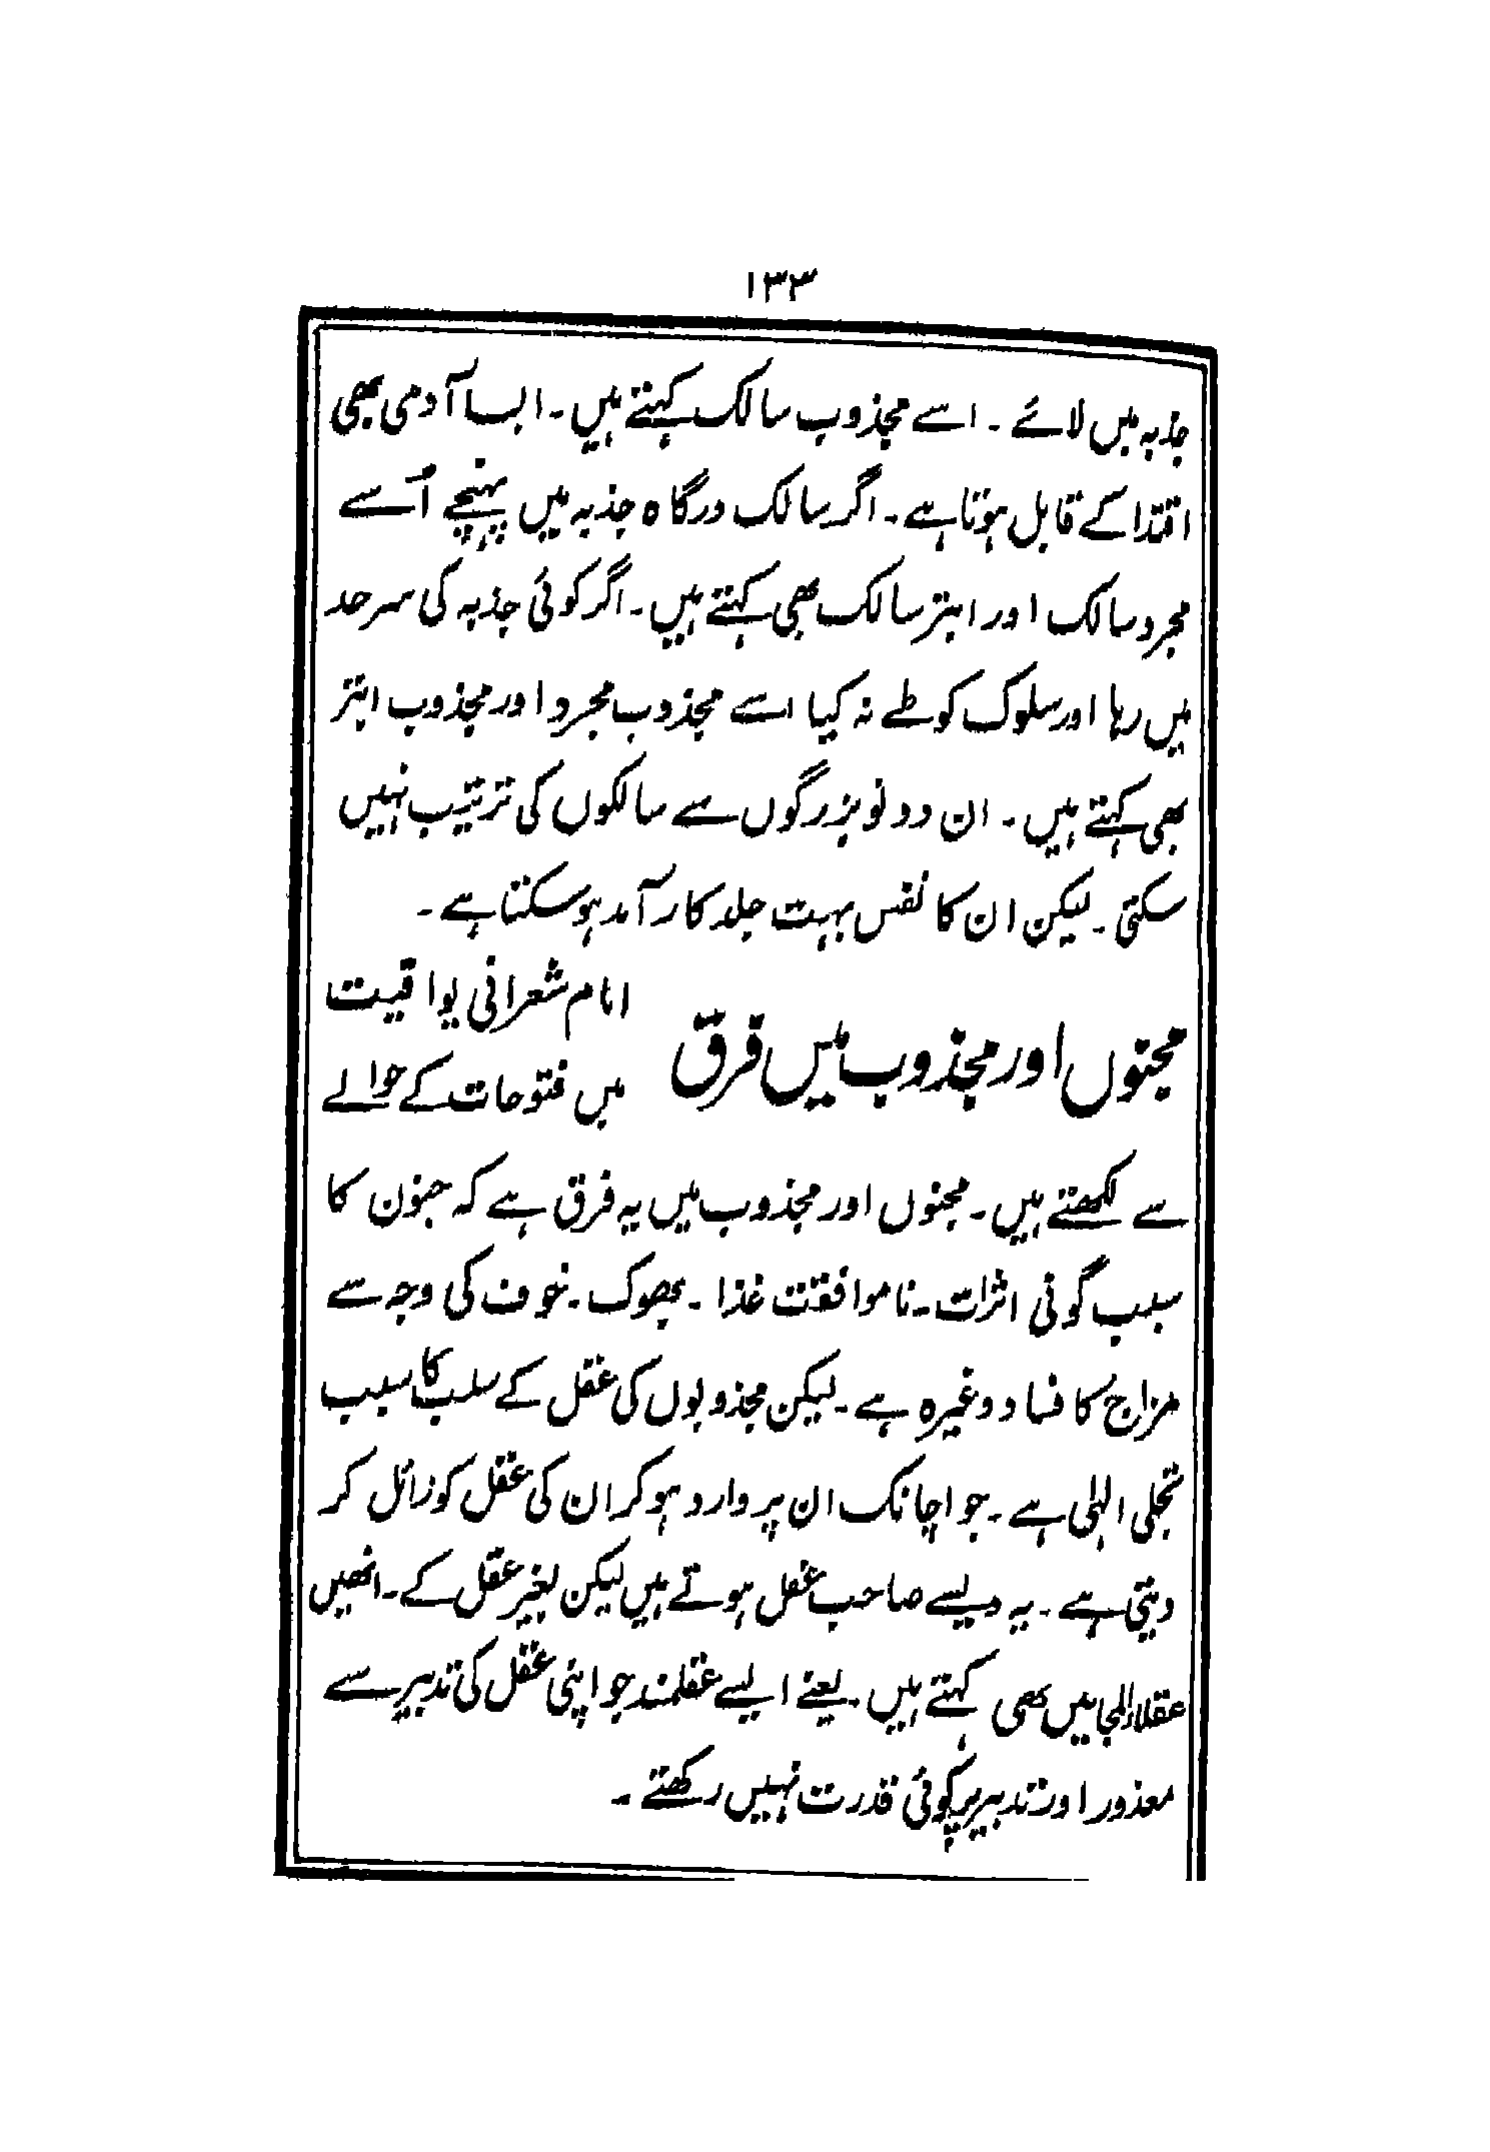 ۱۳۳
جذبہ میں لائے ۔ اسے مجذوب سالک کہتے ہیں۔ ایسا آدمی بھی
اقتدا کے قابل ہوتا ہے۔ اگر سالک درگاہ جذبہ میں پہنچے اُسے
مجرد سالک اور ابتر سالک بھی کہتے ہیں۔ اگر کوئی جذبہ کی سرحد
میں رہا اور سلوک کو طے نہ کیا اسے مجذوب مجرد اور مجذوب ابتر
بھی کہتے ہیں۔ ان دونو بزرگوں سے سالکوں کی تربیّت نہیں
سکتی۔ لیکن ان کا نفس بہت جلد کار آمد ہو سکتا ہے۔
مجنوں اور مجذوب میں فرق
امام شعرانی یواقیت
میں فتوحات کے حوالے
سے لکھتے ہیں۔ مجنوں اور مجذوب میں یہ فرق ہے کہ جنون کا
سبب گونی اثرات۔ ناموافقت غذا ۔ بھوک۔ خوف کی وجہ سے
مزاج کا فساد وغیرہ ہے۔ لیکن مجذوبوں کی عقل کے سلب کا سبب
تجلی الہٰی ہے۔ جو اچانک ان پر وارد ہو کر ان کی عقل کو زائل کر
دیتی ہے۔ یہ ویسے صاحب عقل ہوتے ہیں لیکن بغیر عقل کے۔ انھیں
عقلاء المجانیں بھی کہتے ہیں۔ یعنے ایسے عقلمند جو اپنی عقل کی تدبیر سے
معذور اور تدبیر پر کوئی قدرت نہیں رکھتے ۔